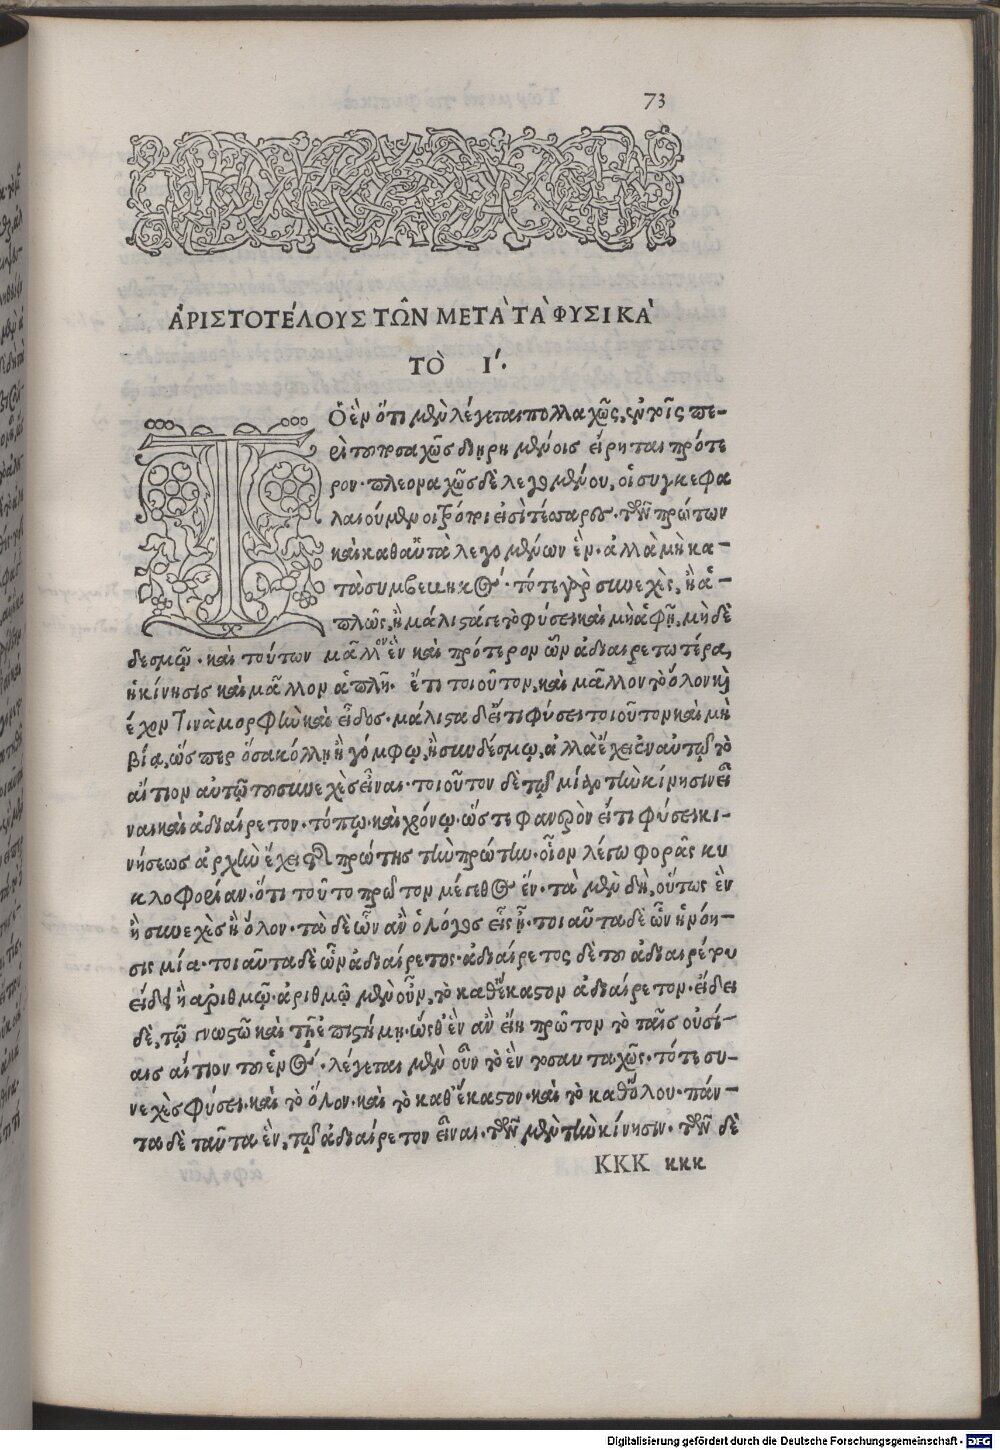 73
ἈΡΙΣΤΟΤΈΛΟΥΣ ΤΩ͂Ν ΜΕΤᾺ ΤᾺ ΦΥΣΙΚΆ
ΤῸ Ι΄.
ΤῸ ἓν ὅτι μὲν λέγεται πολλαχῶς, ἐν τοῖς πε-
ρὶ τοῦ ποσαχῶς διῃρημένοις εἴρηται πρότε
ρον· πλεοναχῶς δὲ λεγομένου, οἱ συγκεφα
λαιούμενοι τρόποι εἰσὶ τέσσαρες· τῶν πρώτων
καὶ καθ᾽ αὑτὰ λεγομένων ἓν· ἀλλὰ μὴ κα-
τὰ συμβεβηκός· τό τε γὰρ συνεχὲς, ἢ ἁ-
πλῶς, ἢ μάλιστά γε τὸ φύσει καὶ μὴ ἁφῇ, μηδὲ
δεσμῷ· καὶ τούτων μᾶλλον ἓν καὶ πρότερον ὧν ἀδιαιρετωτέρα,
ἡ κίνησις καὶ μᾶλλον ἁπλῆ· ἔτι τοιοῦτον, καὶ μᾶλλον τὸ ὅλον καὶ
ἔχον τινὰ μορφὴν καὶ εἶδος· μάλιστα δ᾽ εἴ τι φύσει τοιοῦτον καὶ μὴ
βίᾳ, ὥσπερ ὅσα κόλλῃ ἢ γόμφῳ, ἢ συνδέσμῳ, ἀλλὰ ἔχει ἐν αὑτῷ τὸ
αἴτιον αὐτῷ τοῦ συνεχὲς εἶναι· τοιοῦτον δὲ τῷ μίαν τὴν κίνησιν εἶ
ναι καὶ ἀδιαίρετον· τόπῳ· καὶ χρόνῳ· ὥστε φανερὸν εἴ τι φύσει κι-
νήσεως ἀρχὴν ἔχει τῆς πρώτης τὴν πρώτην· οἷον λέγω φορᾶς κυ
κλοφορίαν· ὅτι τοῦτο πρῶτον μέγεθος ἕν· τὰ μὲν δὴ, οὕτως ἓν
ἢ συνεχὲς ἢ ὅλον· τὰ δὲ ὧν ἂν ὁ λόγος εἷς ᾖ· τοιαῦτα δὲ ὧν ἡ νόη-
σις μία· τοιαῦτα δὲ ὧν ἀδιαίρετος· ἀδιαίρετος δὲ τοῦ ἀδιαιρέτου
εἴδει ἢ ἀριθμῷ· ἀριθμῷ μὲν οὖν, τὸ καθ᾽ ἕκαστον ἀδιαίρετον· εἴδει
δὲ, τῷ γνωστῷ καὶ τῇ ἐπιστήμῃ· ὥσθ᾽ ἓν ἂν εἴη πρῶτον τὸ ταῖς οὐσί-
αις αἴτιον τοῦ ἑνός· λέγεται μὲν οὖν τὸ ἓν τοσαυταχῶς· τό τε συ-
νεχὲς φύσει· καὶ τὸ ὅλον· καὶ τὸ καθ᾽ ἕκαστον· καὶ τὸ καθόλου· πάν-
τα δὲ ταῦτα ἓν, τῷ ἀδιαίρετον εἶναι· τῶν μὲν τὴν κίνησιν· τῶν δὲ
ΚΚΚ κκκ
Digitalisierung gefördert durch die Deutsche Forschungsgemeinschaft - DFG